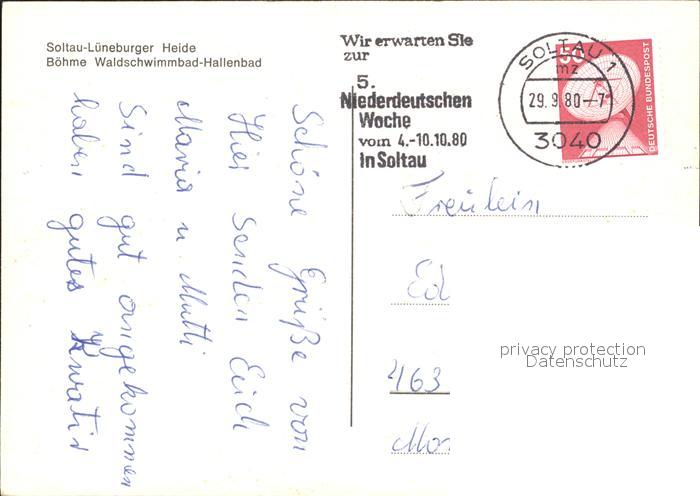 Soltau-Lüneburger Heide
Böhme Waldschwimmbad-Hallenbad
Wir erwarten Sie
zur
5.
Niederdeutschen
Woche
vom 4.-10.10.80
in Soltau
SOLTAU 1
mz
29.9.80--7
3040
50
DEUTSCHE BUNDESPOST
Schöne Grüße von
Hier senden Euch
Maria u. Mutti
Sind gut angekommen
haben gutes
Freulein
Ed
463
privacy protection
Datenschutz